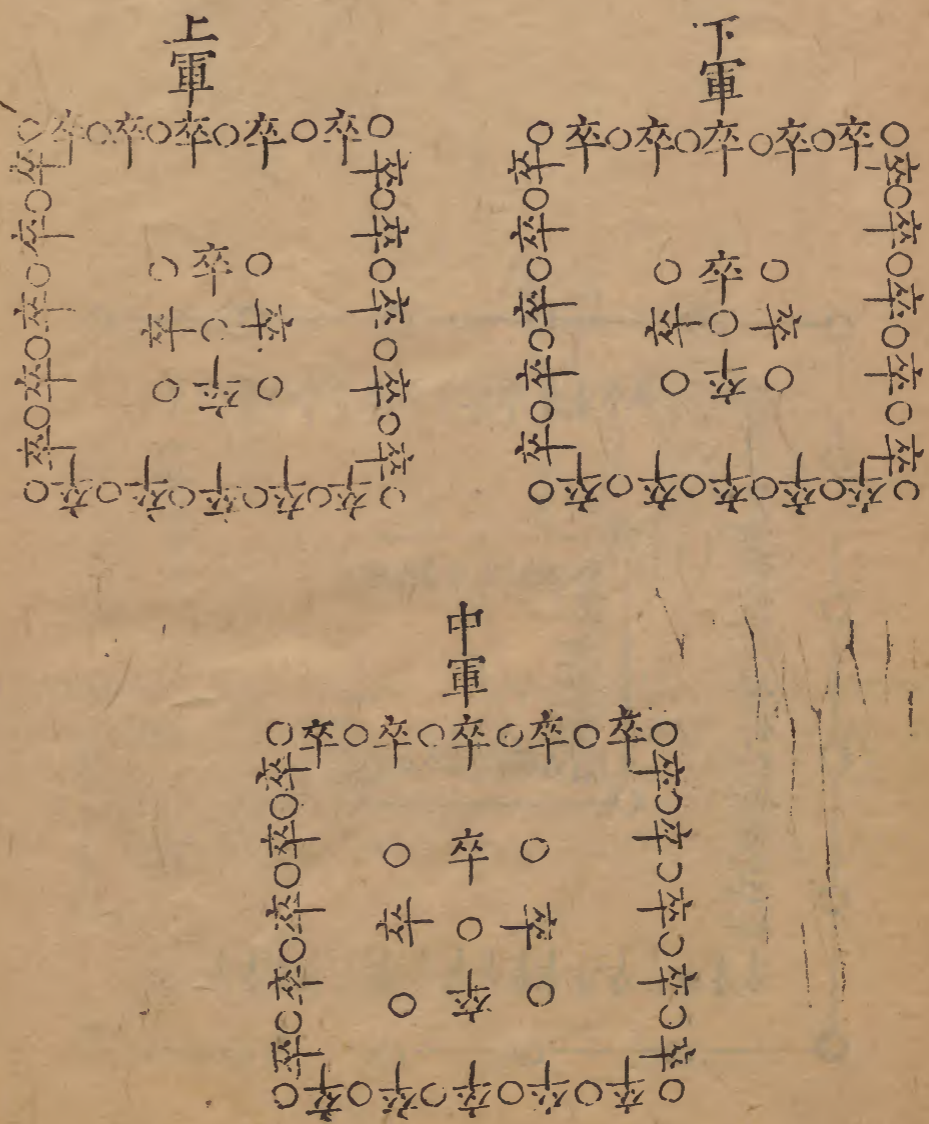 下軍
卒 卒 卒 卒 卒
卒 卒
卒 卒
卒
卒 卒 卒 卒
卒 卒 卒
卒 卒
卒 卒 卒 卒 卒
上軍
卒 卒 卒 卒 卒
卒 卒
卒 卒
卒
卒 卒 卒 卒
卒 卒 卒
卒 卒
卒 卒 卒 卒 卒
中軍
卒 卒 卒 卒 卒
卒 卒
卒 卒
卒
卒 卒 卒 卒
卒 卒 卒
卒 卒
卒 卒 卒 卒 卒